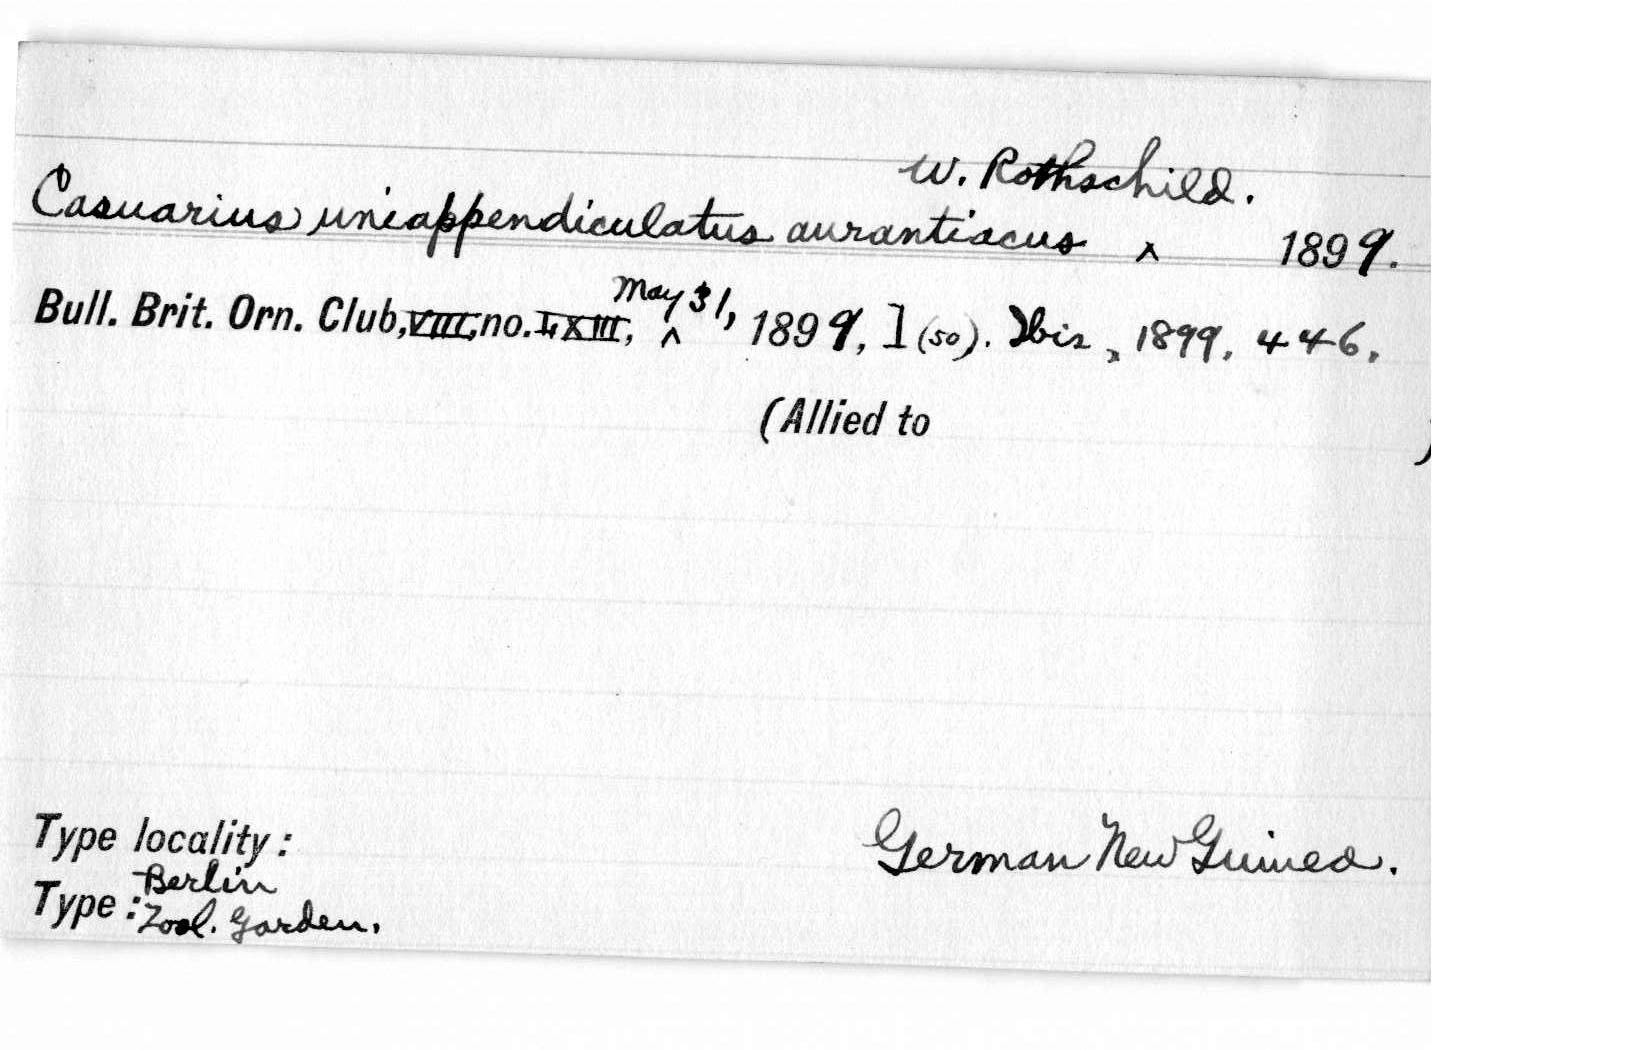 W. Rothschild.
Casuarius uniappendiculatus aurantiacus ^ 1899.
May 31,
Bull. Brit. Orn. Club, VIII, no. LXIII, ^ 1899, l (50). Ibis, 1899, 446.
(Allied to )
Type locality: German New Guinea.
Berlin
Type: Zool. Garden.